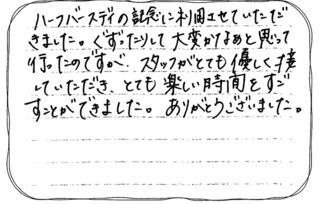 ハーフバースディの記念に利用させていただ
きました。ぐずったりして大変かなあと思って
行ったのですが、スタッフがとても優しく接
していただき、とても楽しい時間をすご
すことができました。ありがとうございました。